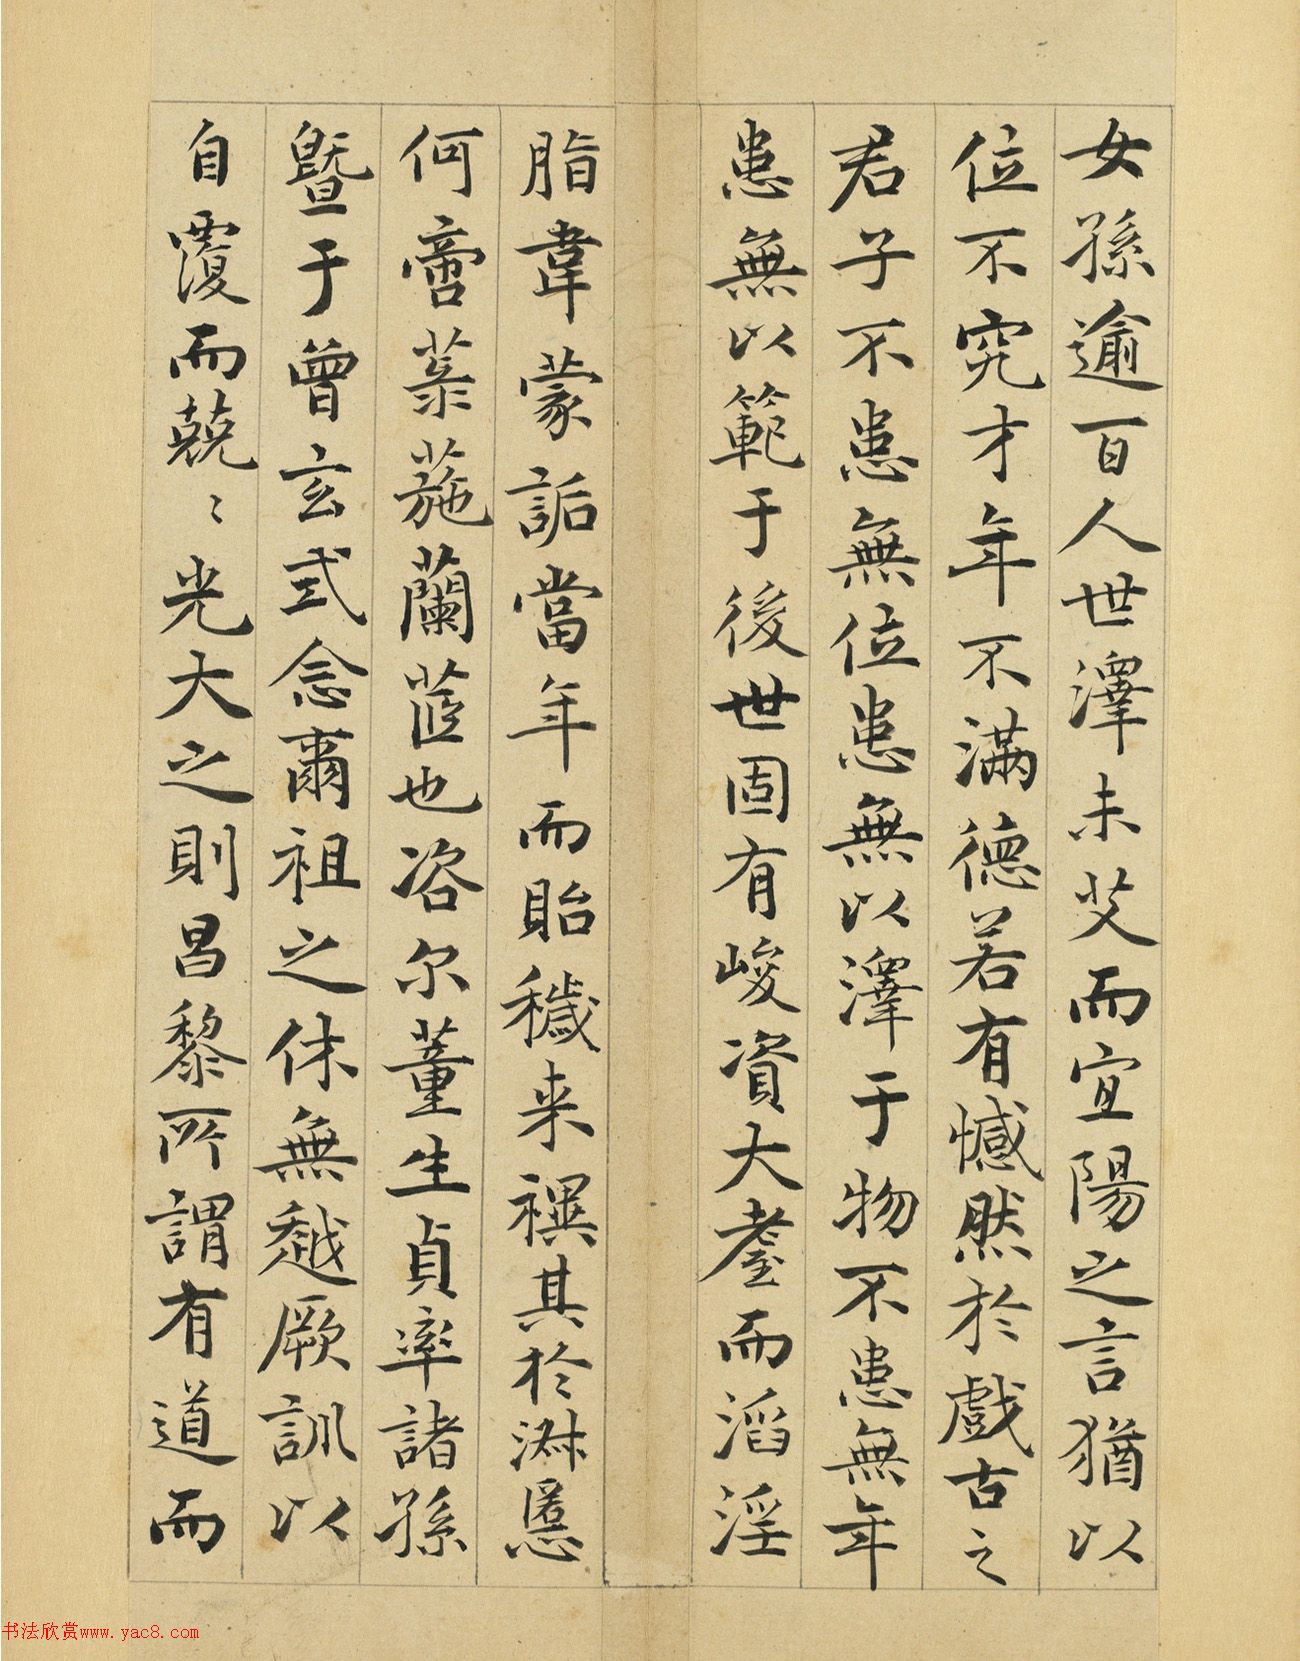 女孫逾百人世澤未艾而宜陽之言猶以
位不究才年不滿德若有憾然於戲古之
君子不患無位患無以澤于物不患無年
患無以範于後世固有峻資大耋而滔淫
脂韋蒙詬當年而貽穢来禩其於淋慝
何啻蒸葹蘭茝也咨尔董生貞率諸孫
暨于曾玄式念爾祖之休無越厥訓以
自覆而兢〻光大之則昌黎所謂有道而
书法欣赏www.yac8.com